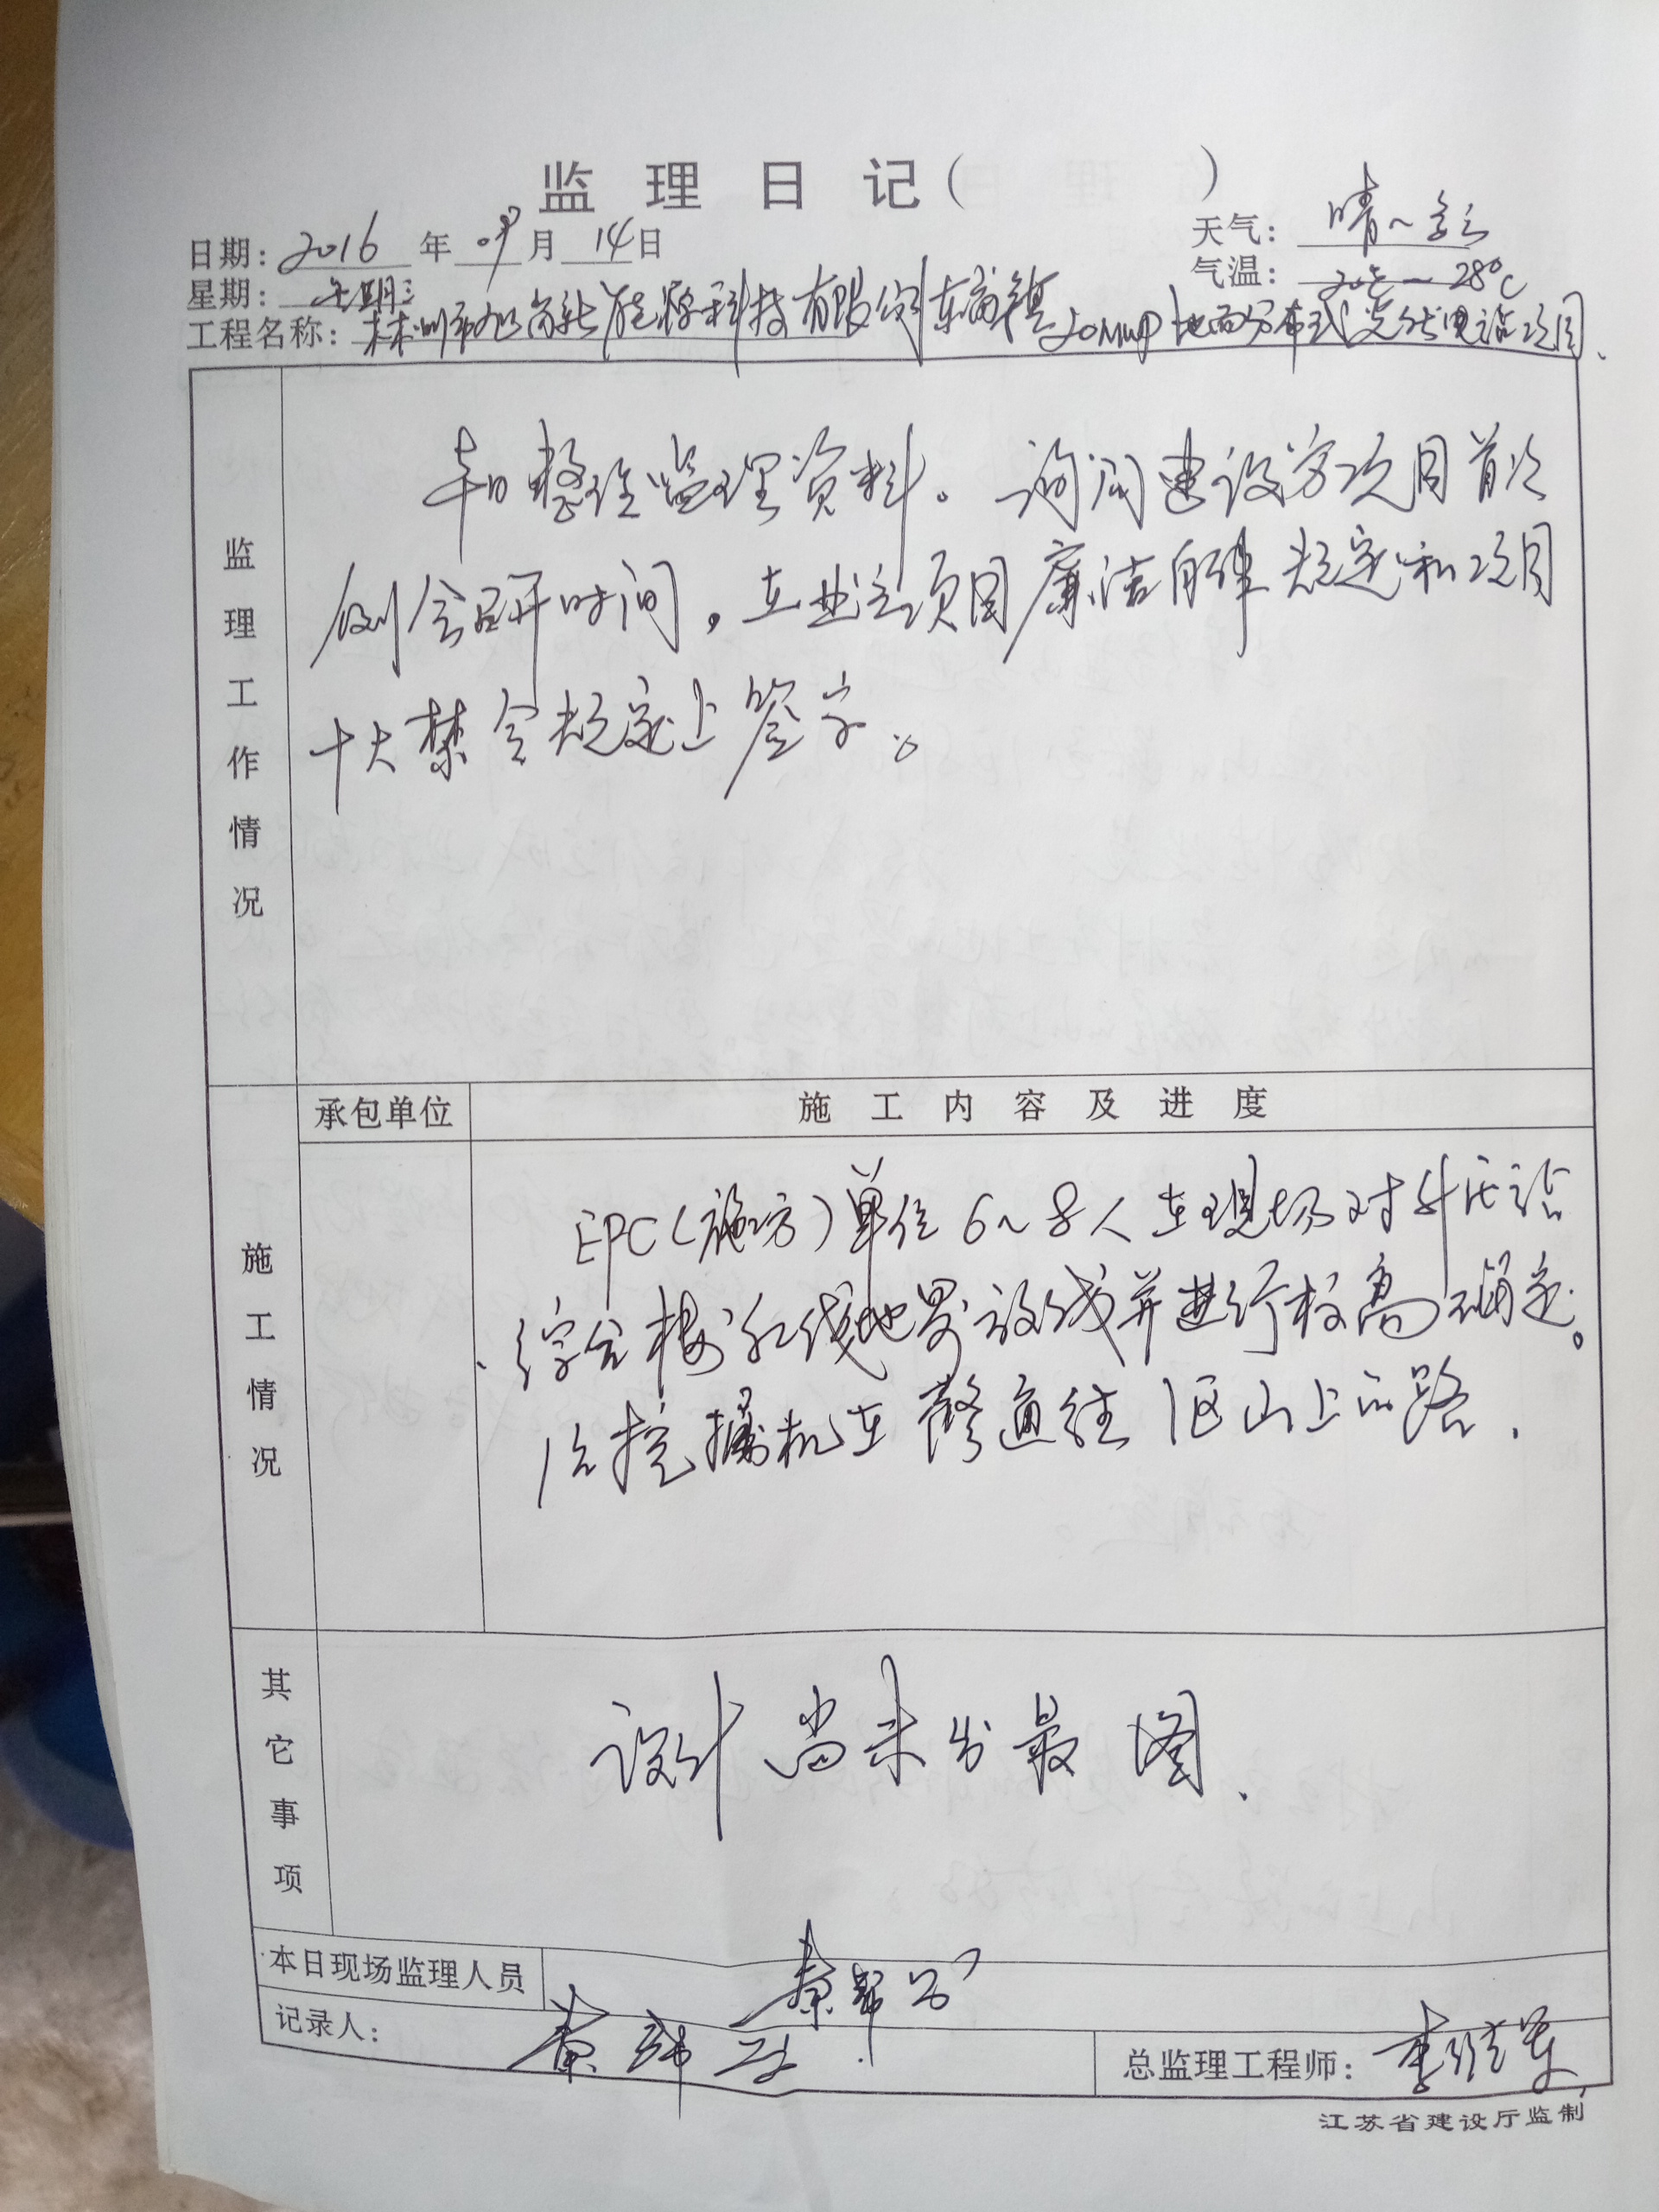 监理日记( )
日期: 2016 年 09 月 14 日 天气: 晴~多云
星期: 星期三 气温: 20℃~28℃
工程名称: 新能源科技有限公司东 镇20MWP地面分布式光伏电站项目.
监理工作情况
本日整理监理资料。询问建设方项目首次
例会召开时间,在业主项目廉洁自律规定和项目
十大禁令规定上签字。
承包单位 施工内容及进度
施工情况
EPC(施工方)单位6~8人在现场对升压站
综合楼红线地界放线并进行校高确定。
1台挖掘机在修通往1区山上的路.
其它事项
设计尚未出最图.
本日现场监理人员
记录人:
总监理工程师: 李
江苏省建设厅监制